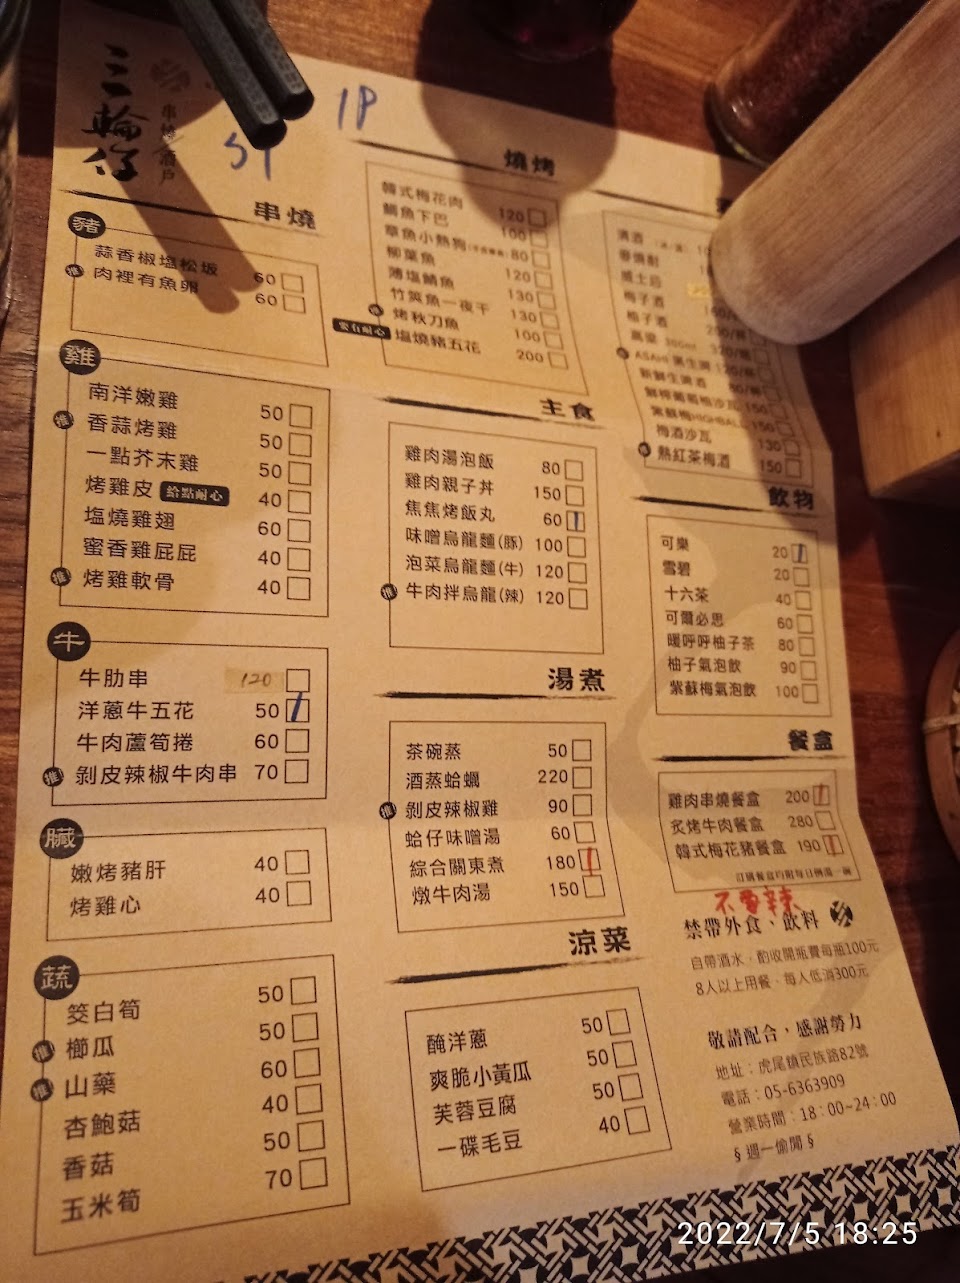 三輪仔
串燒 酒戶
5T
1P
串燒
豬
蒜香椒塩松坂 60
推 肉裡有魚卵 60
雞
南洋嫩雞 50
推 香蒜烤雞 50
一點芥末雞 50
烤雞皮 給點耐心 40
塩燒雞翅 60
蜜香雞屁屁 40
推 烤雞軟骨 40
牛
牛肋串 120
洋蔥牛五花 50
牛肉蘆筍捲 60
推 剝皮辣椒牛肉串 70
臟
嫩烤豬肝 40
烤雞心 40
蔬
筊白筍 50
推 櫛瓜 50
推 山藥 60
杏鮑菇 40
香菇 50
玉米筍 70
燒烤
韓式梅花肉 120
鯛魚下巴 100
章魚小熱狗 80
柳葉魚 120
薄塩鯖魚 130
竹筴魚一夜干 130
推 烤秋刀魚 100
要有耐心 塩燒豬五花 200
主食
雞肉湯泡飯 80
雞肉親子丼 150
焦焦烤飯丸 60
味噌烏龍麵(豚) 100
泡菜烏龍麵(牛) 120
推 牛肉拌烏龍(辣) 120
湯煮
茶碗蒸 50
酒蒸蛤蠣 220
推 剝皮辣椒雞 90
蛤仔味噌湯 60
綜合關東煮 180
燉牛肉湯 150
涼菜
醃洋蔥 50
爽脆小黃瓜 50
芙蓉豆腐 50
一碟毛豆 40
清酒
威士忌
梅子酒
柚子酒 200/杯
高粱 300ml 320/瓶
推 ASAHI 黑生啤 120/杯
新鮮生啤酒
鮮榨葡萄柚沙瓦 150
紫蘇梅HIGHBALL 150
梅酒沙瓦 130
推 熱紅茶梅酒 150
飲物
可樂 20
雪碧 20
十六茶 40
可爾必思 60
暖呼呼柚子茶 80
柚子氣泡飲 90
紫蘇梅氣泡飲 100
餐盒
雞肉串燒餐盒 200
炙烤牛肉餐盒 280
韓式梅花豬餐盒 190
訂購餐盒均附每日例湯一碗
不要辣
禁帶外食、飲料
自帶酒水，酌收開瓶費每瓶100元
8人以上用餐，每人低消300元
敬請配合，感謝勞力
地址：虎尾鎮民族路82號
電話：05-6363909
營業時間：18：00~24：00
§ 週一偷閒 §
2022/7/5 18:25